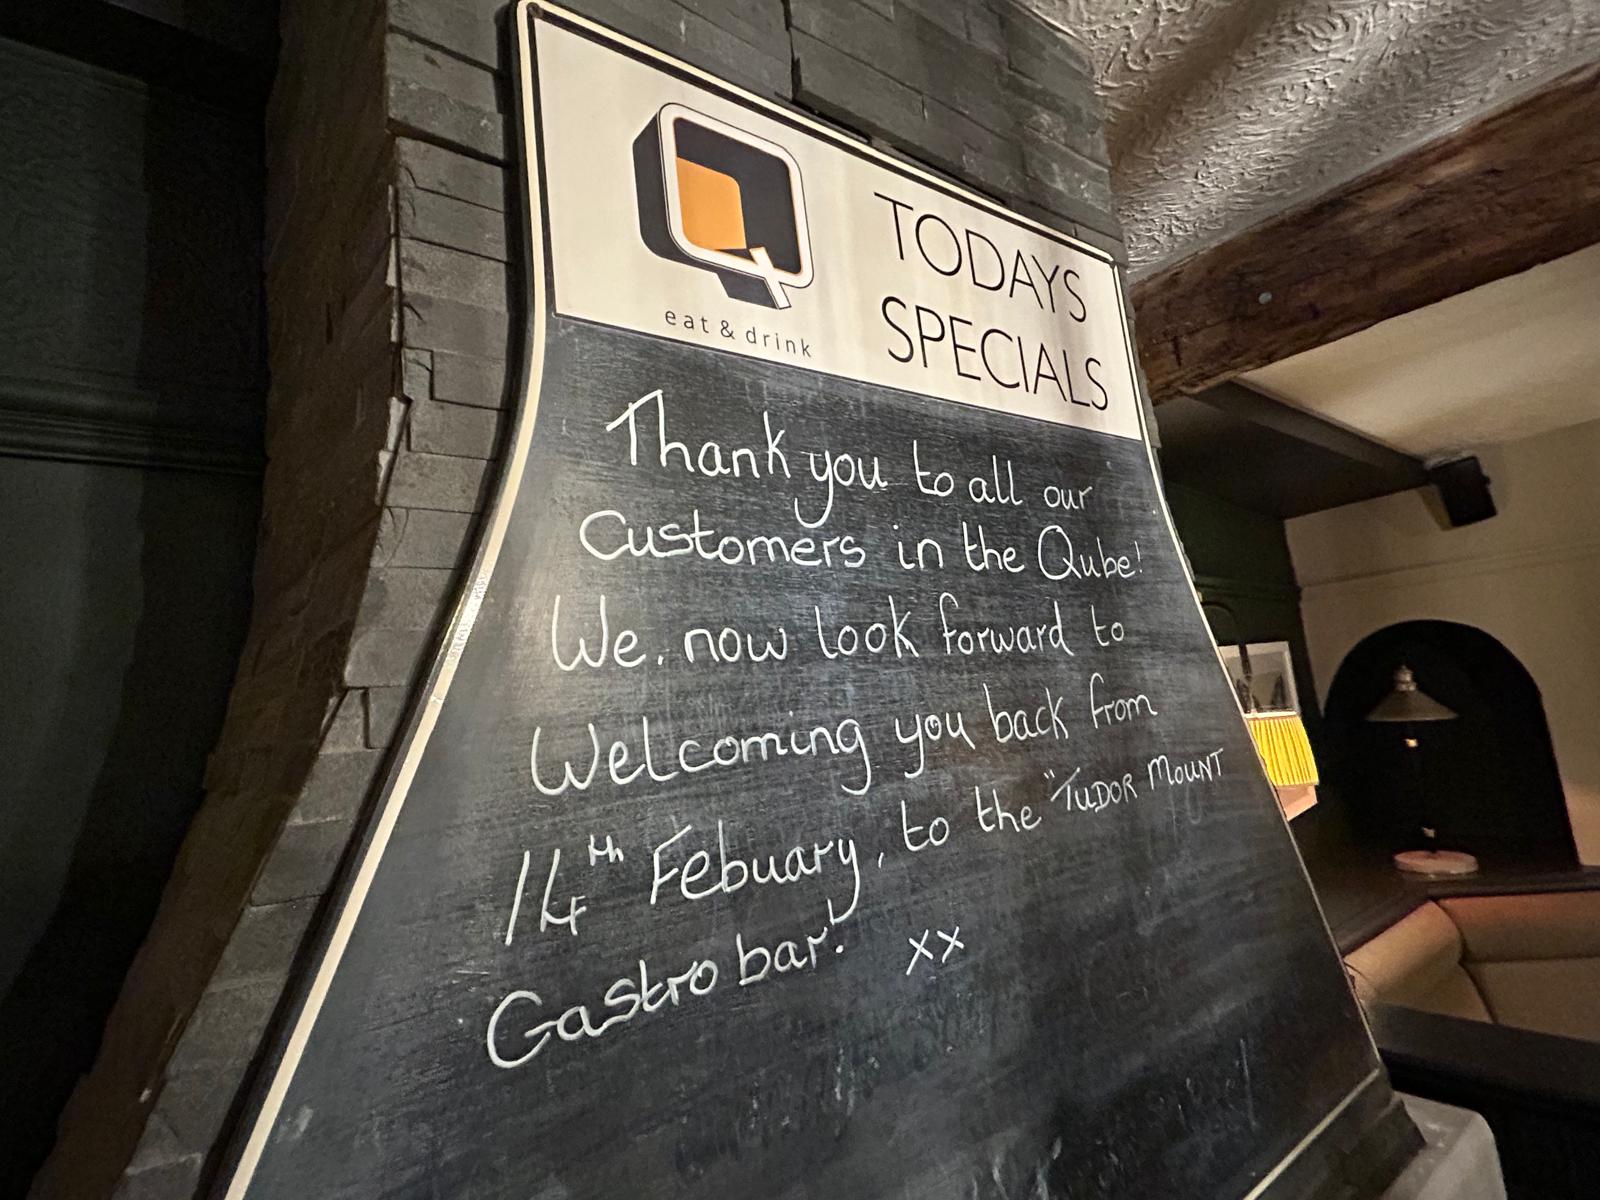 Q
eat & drink
TODAYS
SPECIALS
Thank you to all our
Customers in the Qube!
We. now look forward to
Welcoming you back from
14th Febuary, to the "TUDOR MOUNT
Gastro bar! xx